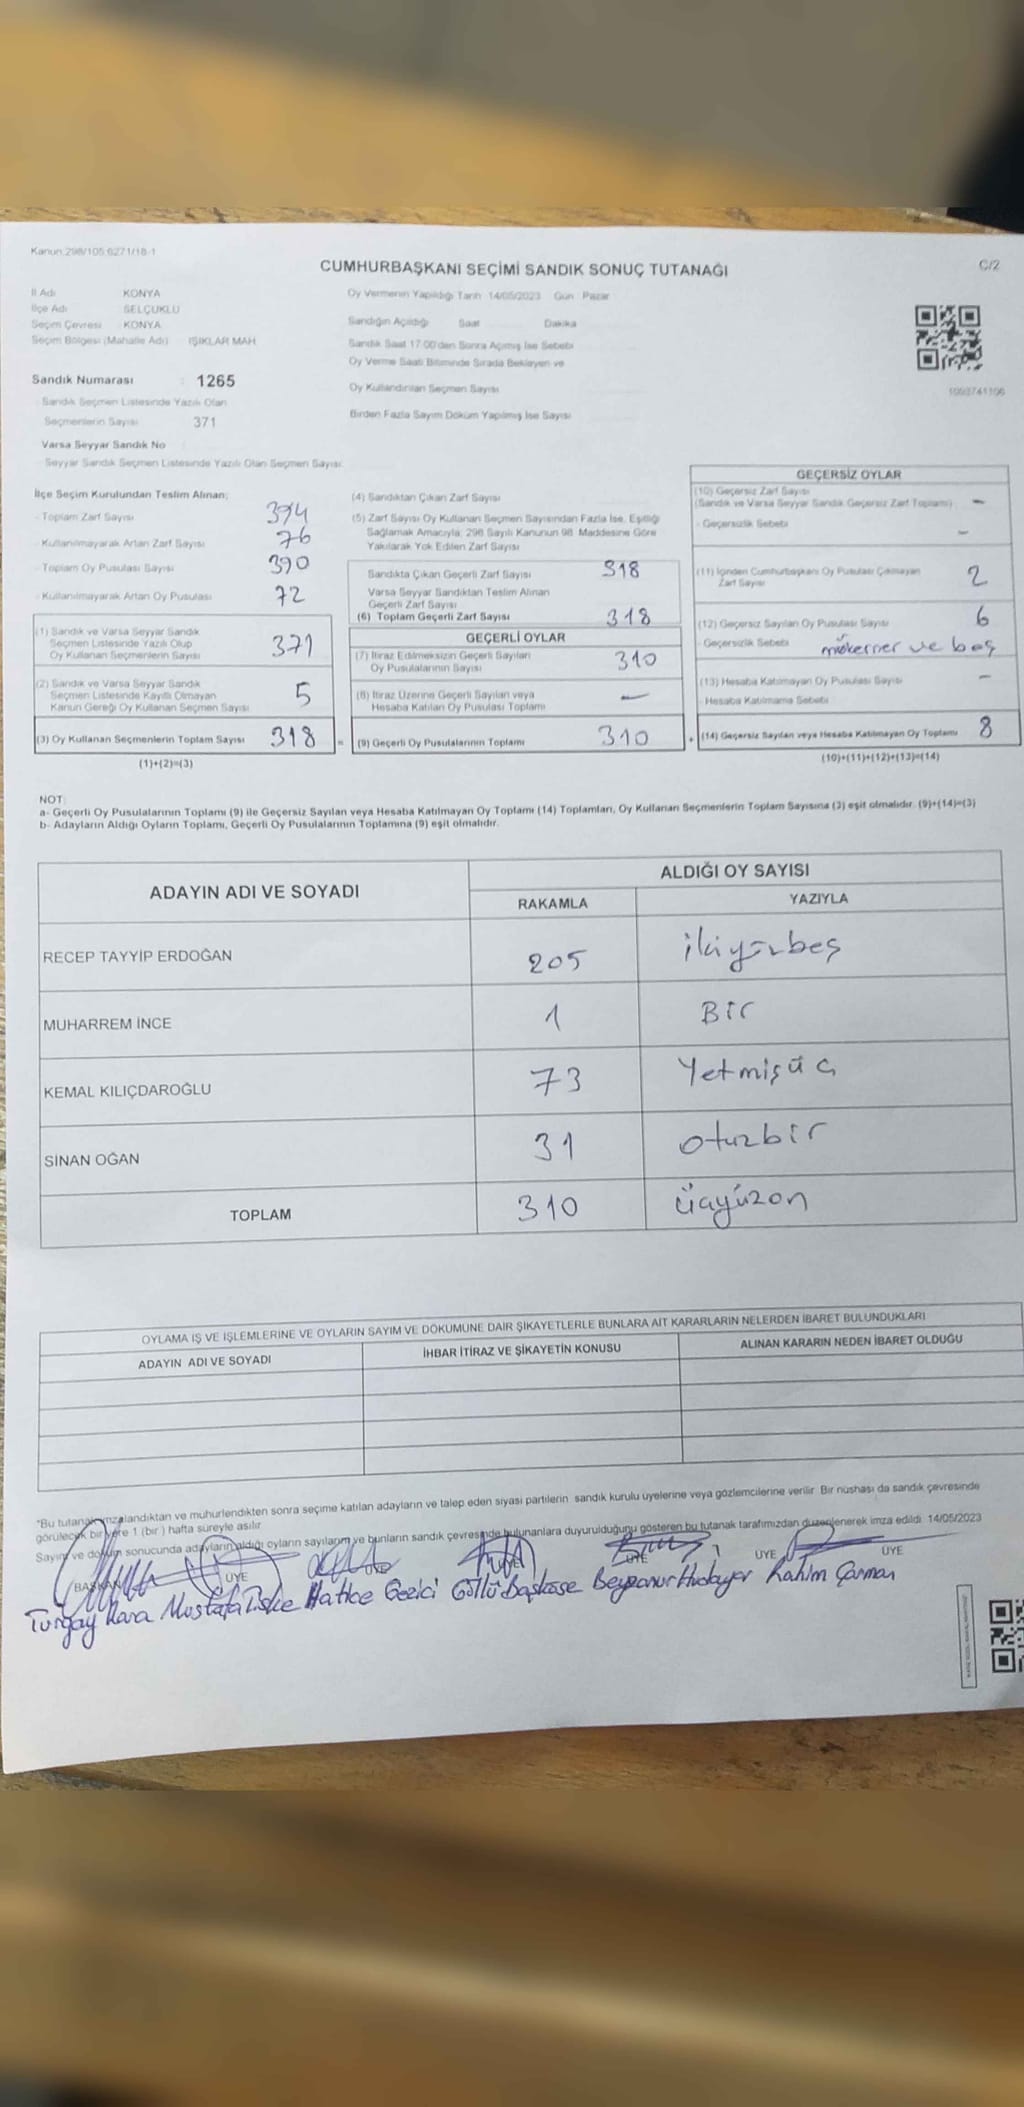 Kanun 298/105 6271/18-1
CUMHURBAŞKANI SEÇİMİ SANDIK SONUÇ TUTANAĞI
C/2
İl Adı KONYA
İlçe Adı SELÇUKLU
Seçim Çevresi KONYA
Seçim Bölgesi (Mahalle Adı) IŞIKLAR MAH
Sandık Numarası : 1265
Sandık Seçmen Listesinde Yazılı Olan
Seçmenlerin Sayısı 371
Varsa Seyyar Sandık No
Seyyar Sandık Seçmen Listesinde Yazılı Olan Seçmen Sayısı:
Oy Vermenin Yapıldığı Tarih 14/05/2023 Gün Pazar
Sandığın Açıldığı Saat Dakika
Sandık Saat 17:00'den Sonra Açımış İse Sebebi
Oy Verme Saati Bitiminde Sırada Bekleyen ve
Oy Kullandırılan Seçmen Sayısı
Birden Fazla Sayım Döküm Yapılmış İse Sayısı
İlçe Seçim Kurulundan Teslim Alınan;
- Toplam Zarf Sayısı 394
- Kullanılmayarak Artan Zarf Sayısı 76
- Toplam Oy Pusulası Sayısı 390
- Kullanılmayarak Artan Oy Pusulası 72
(1) Sandık ve Varsa Seyyar Sandık
Seçmen Listesinde Yazılı Olup
Oy Kullanan Seçmenlerin Sayısı 371
(2) Sandık ve Varsa Seyyar Sandık
Seçmen Listesinde Kayıtlı Olmayan
Kanun Gereği Oy Kullanan Seçmen Sayısı 5
(3) Oy Kullanan Seçmenlerin Toplam Sayısı 318 =
(1)+(2)=(3)
(4) Sandıktan Çıkan Zarf Sayısı
(5) Zarf Sayısı Oy Kullanan Seçmen Sayısından Fazla İse, Eşitliği
Sağlamak Amacıyla, 298 Sayılı Kanunun 98. Maddesine Göre
Yakılarak Yok Edilen Zarf Sayısı
Sandıkta Çıkan Geçerli Zarf Sayısı 318
Varsa Seyyar Sandıktan Teslim Alınan
Geçerli Zarf Sayısı
(6) Toplam Geçerli Zarf Sayısı 318
GEÇERLİ OYLAR
(7) İtiraz Edilmeksizin Geçerli Sayılan
Oy Pusulalarının Sayısı 310
(8) İtiraz Üzerine Geçerli Sayılan veya
Hesaba Katılan Oy Pusulası Toplamı —
(9) Geçerli Oy Pusulalarının Toplamı 310 +
GEÇERSİZ OYLAR
(10) Geçersiz Zarf Sayısı
(Sandık ve Varsa Seyyar Sandık Geçersiz Zarf Toplamı) —
- Geçersizlik Sebebi —
(11) İçinden Cumhurbaşkanı Oy Pusulası Çıkmayan
Zarf Sayısı 2
(12) Geçersiz Sayılan Oy Pusulası Sayısı 6
- Geçersizlik Sebebi mükerrer ve boş
(13) Hesaba Katılmayan Oy Pusulası Sayısı —
- Hesaba Katılmama Sebebi
(14) Geçersiz Sayılan veya Hesaba Katılmayan Oy Toplamı 8
(10)+(11)+(12)+(13)=(14)
NOT:
a- Geçerli Oy Pusulalarının Toplamı (9) ile Geçersiz Sayılan veya Hesaba Katılmayan Oy Toplamı (14) Toplamları, Oy Kullanan Seçmenlerin Toplam Sayısına (3) eşit olmalıdır. (9)+(14)=(3)
b- Adayların Aldığı Oyların Toplamı, Geçerli Oy Pusulalarının Toplamına (9) eşit olmalıdır.
ADAYIN ADI VE SOYADI
ALDIĞI OY SAYISI
RAKAMLA YAZIYLA
RECEP TAYYİP ERDOĞAN 205 ikiyüzbeş
MUHARREM İNCE 1 Bir
KEMAL KILIÇDAROĞLU 73 Yetmişüç
SİNAN OĞAN 31 otuzbir
TOPLAM 310 üçyüzon
OYLAMA İŞ VE İŞLEMLERİNE VE OYLARIN SAYIM VE DÖKÜMÜNE DAİR ŞİKAYETLERLE BUNLARA AİT KARARLARIN NELERDEN İBARET BULUNDUKLARI
ADAYIN ADI VE SOYADI İHBAR İTİRAZ VE ŞİKAYETİN KONUSU ALINAN KARARIN NEDEN İBARET OLDUĞU
"Bu tutanak imzalandıktan ve mühürlendikten sonra seçime katılan adayların ve talep eden siyasi partilerin sandık kurulu üyelerine veya gözlemcilerine verilir. Bir nüshası da sandık çevresinde
görülecek bir yere 1 (bir ) hafta süreyle asılır.
Sayım ve döküm sonucunda adayların aldığı oyların sayılarını ve bunların sandık çevresinde bulunanlara duyurulduğunu gösteren bu tutanak tarafımızdan düzenlenerek imza edildi. 14/05/2023
BAŞKAN ÜYE ÜYE ÜYE ÜYE ÜYE ÜYE
Turgay Kara Mustafa Hatice Gezici Güllü Başköse Beyzanur